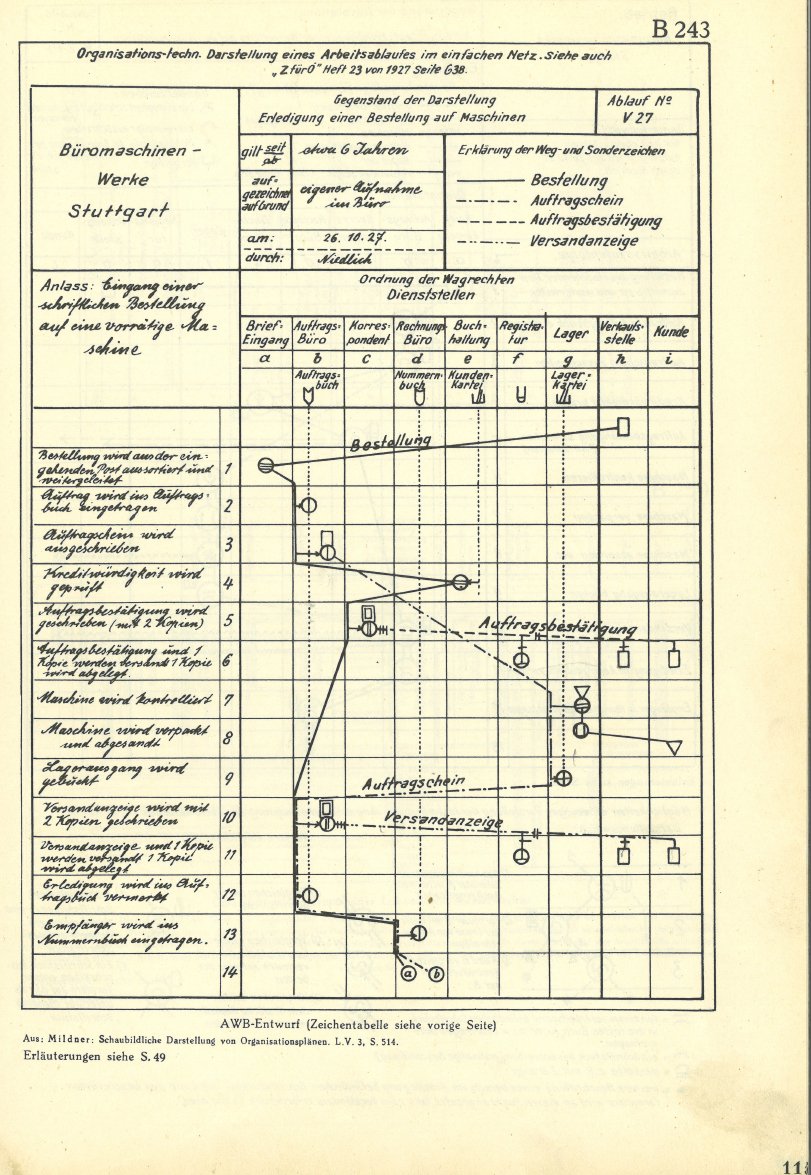 B 243
Organisations-techn. Darstellung eines Arbeitsablaufes im einfachen Netz. Siehe auch
„ZfürO" Heft 23 von 1927 Seite 638.
Büromaschinen-
Werke
Stuttgart
Gegenstand der Darstellung
Erledigung einer Bestellung auf Maschinen
Ablauf No
V 27
gilt seit
ab
etwa 6 Jahren
auf=
gezeichnet
auf Grund
eigener Aufnahme
im Büro
am:
26. 10. 27.
durch:
Niedlich
Erklärung der Weg- und Sonderzeichen
Bestellung
Auftragschein
Auftragsbestätigung
Versandanzeige
Anlass: Eingang einer
schriftlichen Bestellung
auf eine vorrätige Ma=
schine
Ordnung der Wagrechten
Dienststellen
Brief=
Eingang
Auftrags-
Büro
Korres=
pondent
Rechnungs
Büro
Buch=
haltung
Registra=
tur
Lager
Verkaufs-
stelle
Kunde
a b c d e f g h i
Auftrags-
buch
Nummern-
buch
Kunden-
Kartei
Lager=
Kartei
Bestellung
Bestellung wird aus der ein=
gehenden Post aussortiert und
weitergeleitet
1
Auftrag wird ins Auftrags=
buch eingetragen
2
Auftragschein wird
ausgeschrieben
3
Kreditwürdigkeit wird
geprüft
4
Auftragsbestätigung wird
geschrieben (mit 2 Kopien)
5
Auftragsbestätigung
Auftragsbestätigung und 1
Kopie werden versandt 1 Kopie
wird abgelegt.
6
Maschine wird kontrolliert
7
Maschine wird verpackt
und abgesandt
8
Lagerausgang wird
gebucht
9
Auftragschein
Versandanzeige wird mit
2 Kopien geschrieben
10
Versandanzeige
Versandanzeige und 1 Kopie
werden versandt 1 Kopie
wird abgelegt
11
Erledigung wird ins Auf=
tragsbuch vermerkt
12
Empfänger wird ins
Nummernbuch eingetragen.
13
14
a b
AWB-Entwurf (Zeichentabelle siehe vorige Seite)
Aus: Mildner: Schaubildliche Darstellung von Organisationsplänen. L.V. 3, S. 514.
Erläuterungen siehe S. 49